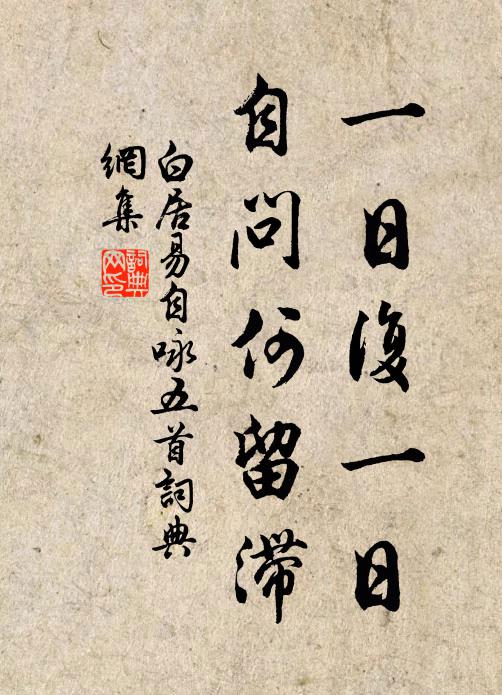 一日復一日
自問何留滯
白居易自咏五首詞典
網集
詞典
网印